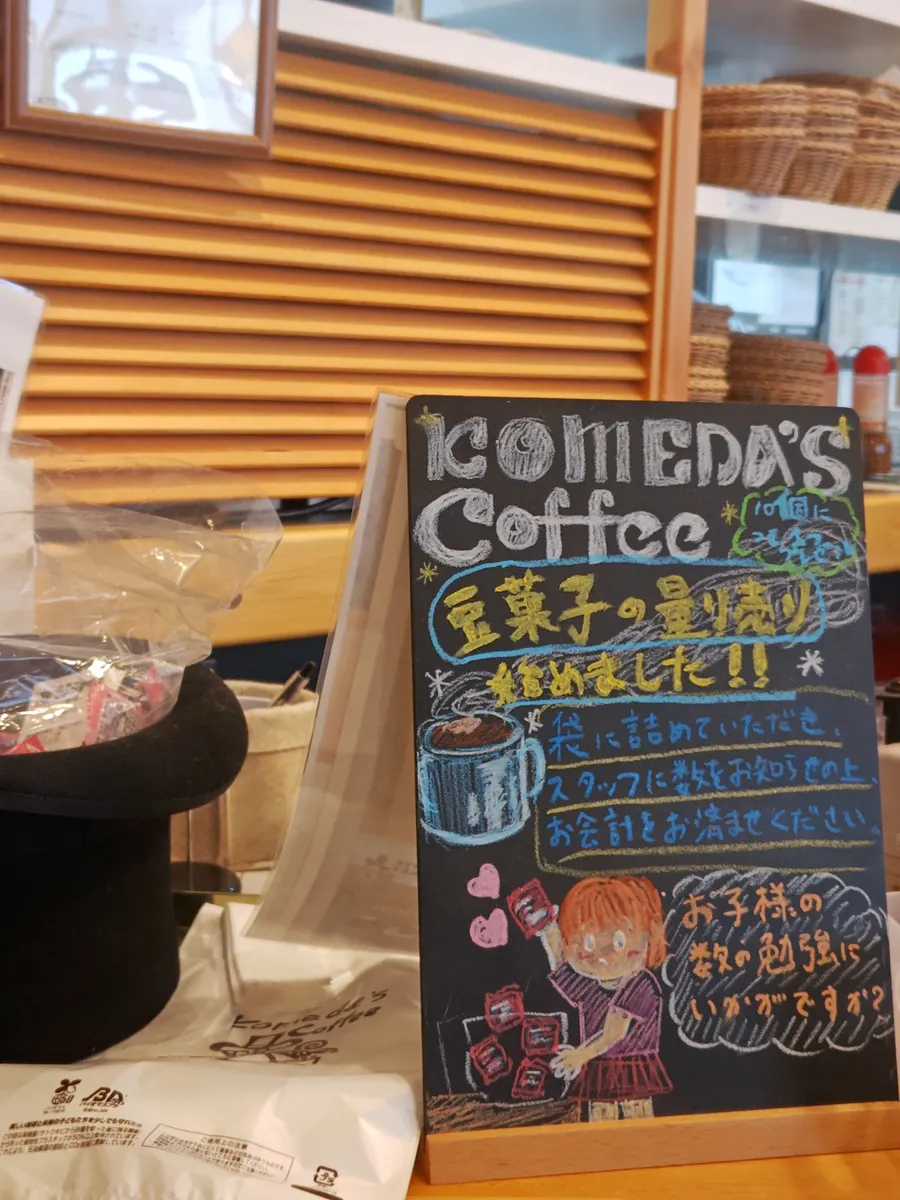 KOMEDA'S
Coffee
10個に
豆菓子の量り売り
始めました!!
袋に詰めていただき、
スタッフに数をお知らせの上、
お会計をお済ませください。
お子様の
数の勉強に
いかがですか?
Komeda's
Coffee
バイオマス
ご使用上の注意